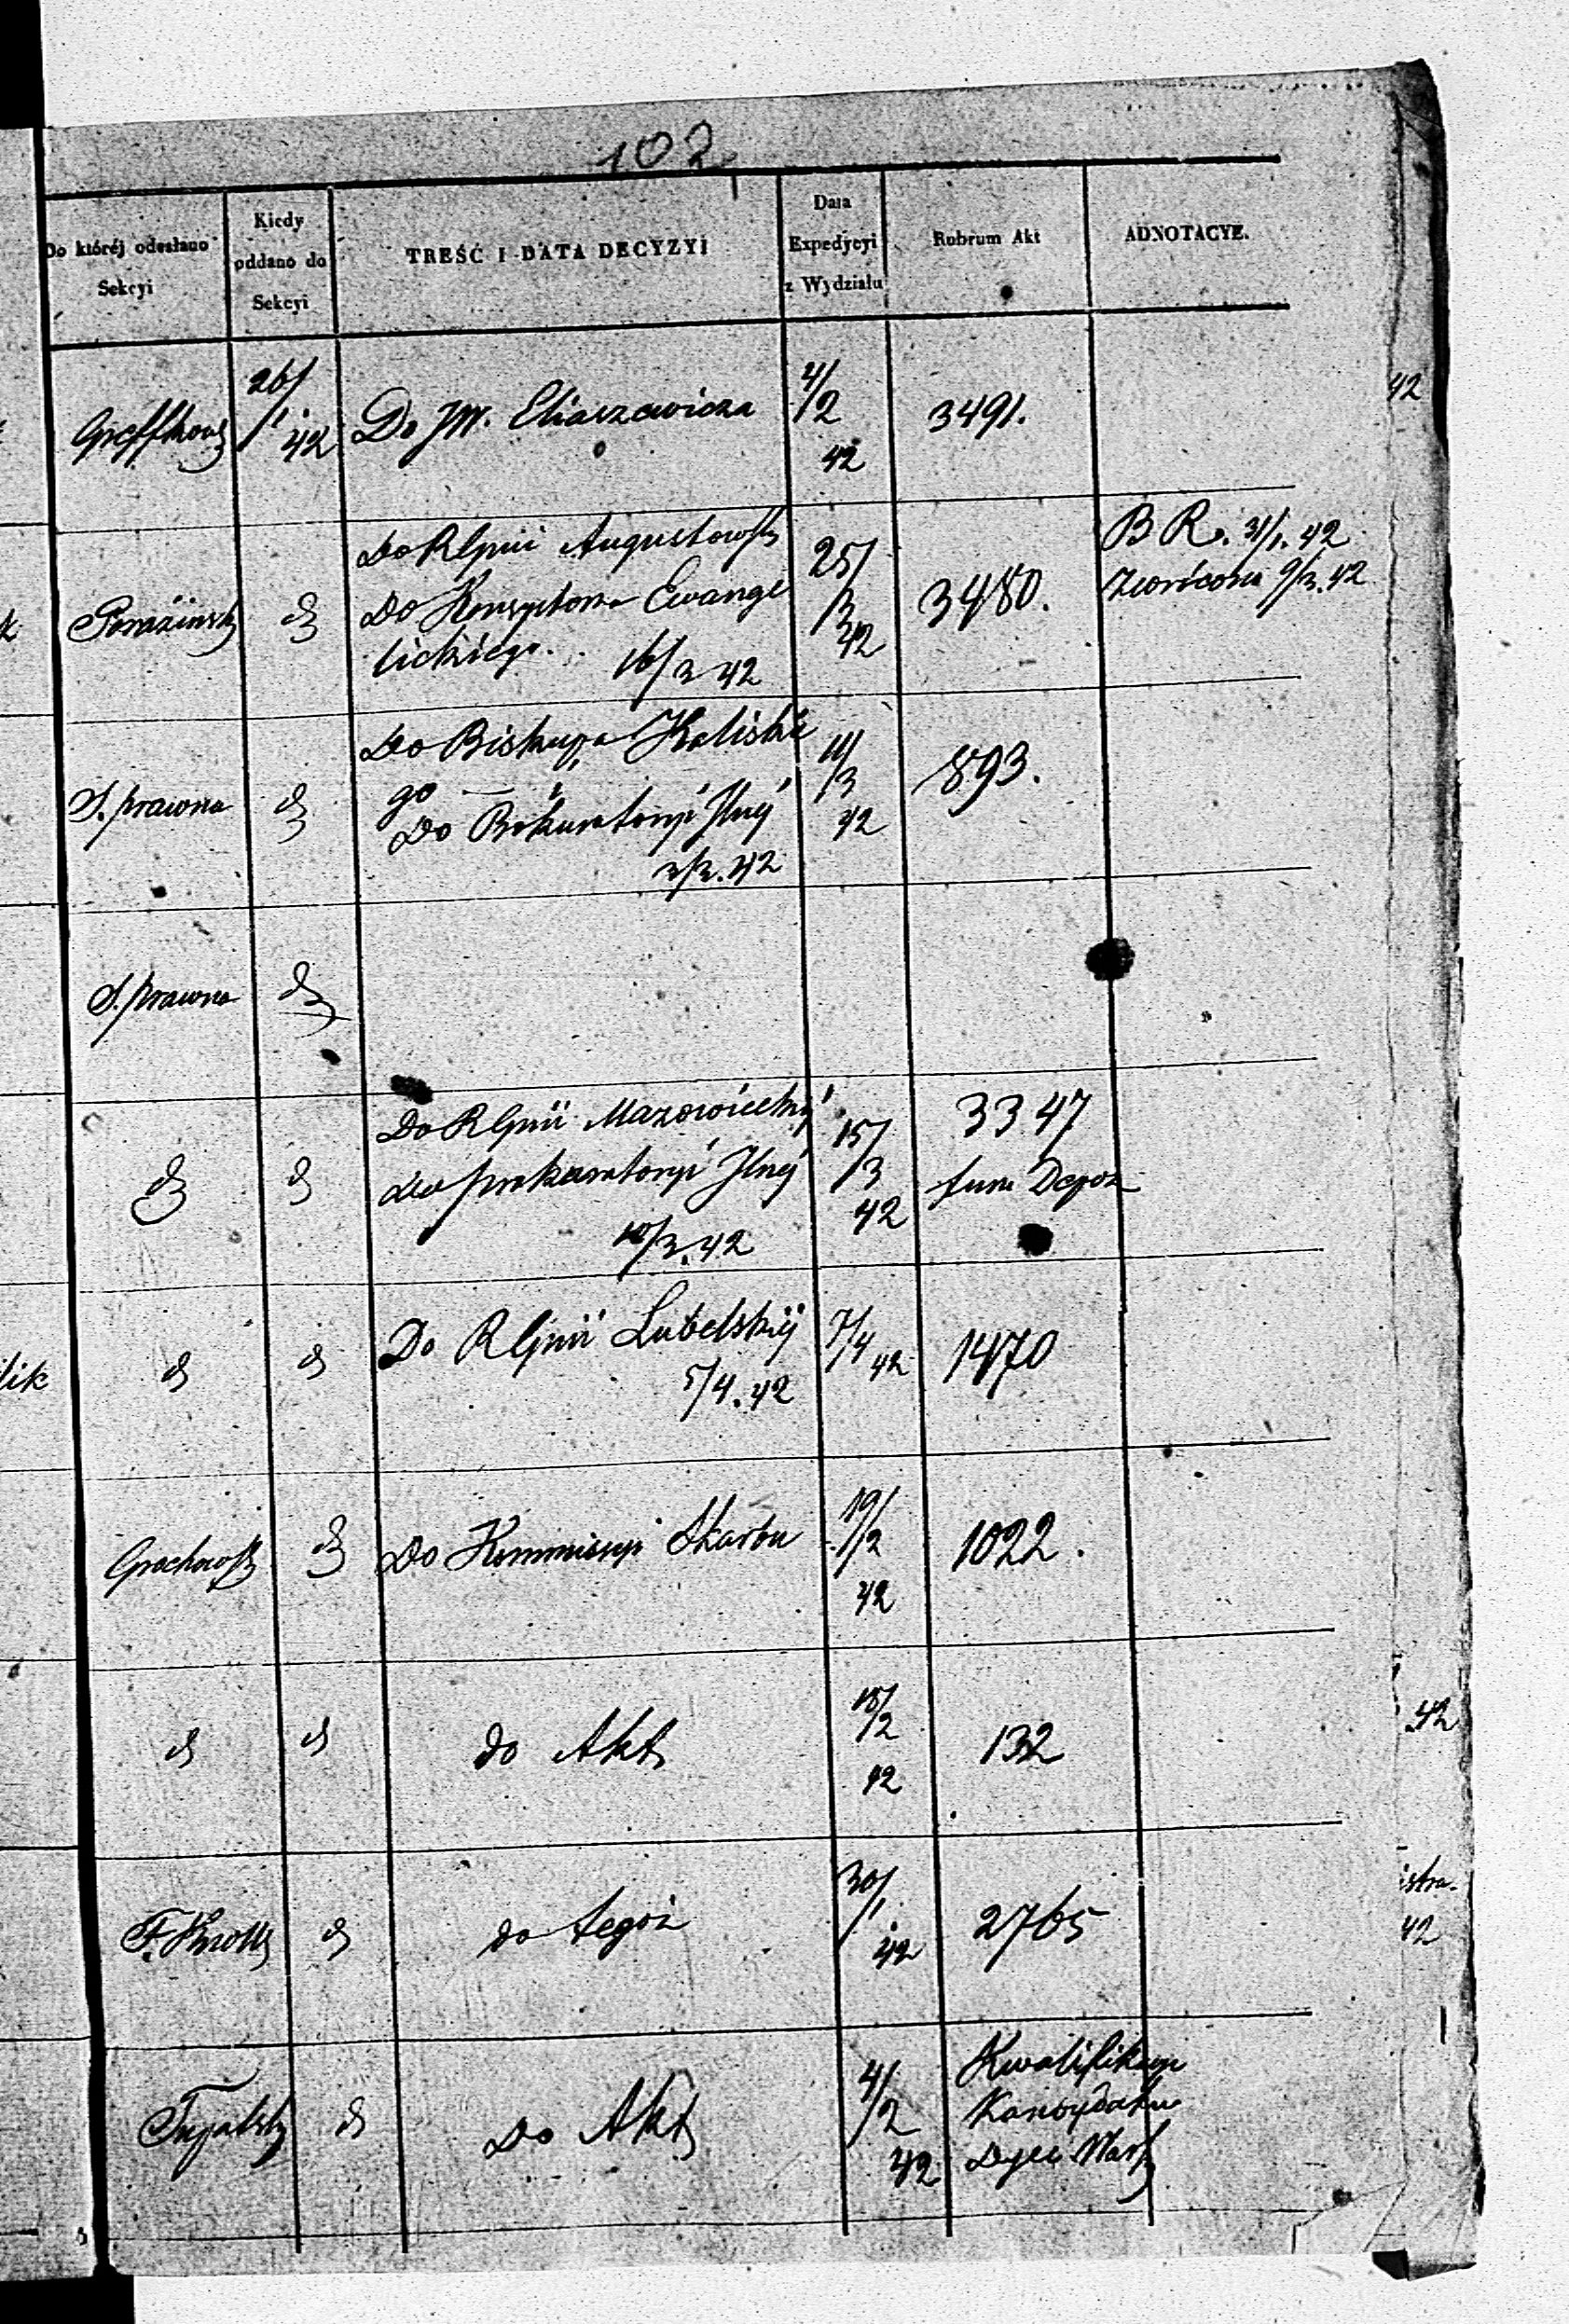 102
Do któréj odesłano
Sekcyi
Kiedy
oddano do
Sekcyi
TREŚĆ I DATA DECYZYI
Data
Expedycyi
z Wydziału
Rubrum Akt
ADNOTACYE.
26/
1. 42
Do JW. Eliaszewicza
4/
/2
42
3491.
Do RGpnii Augustowsk
Do Konsystorza Ewange
lickiego.
16/3 42
25/
/3
42
3480.
B R. 31/1. 42
Zwrócona 9/3. 42
S. prawna
Do Biskupa Kaliskie
go —
Do Prokuratoryi Jlnéj
3/3. 42
11/
/3
42
893.
S. prawna
Do RGpnii Mazowieckiéj
do prokuratoryi Jlnéj
10/3. 42
15/
/3
42
3347
fum Depoz
lik
Do RGpnii Lubelskiéj
5/4. 42
7/4 42
1470
Grochowsk
Do Kommissyi Skarbu
19/
/2
42
1022.
do Akt
18/
/2
42
132
do tegoż
30/
/1.
42
2765
Do Akt
4/
/2
42
Kwalifikacye
Kandydatów
Dyec. Warsz
42
.42
istra-
42